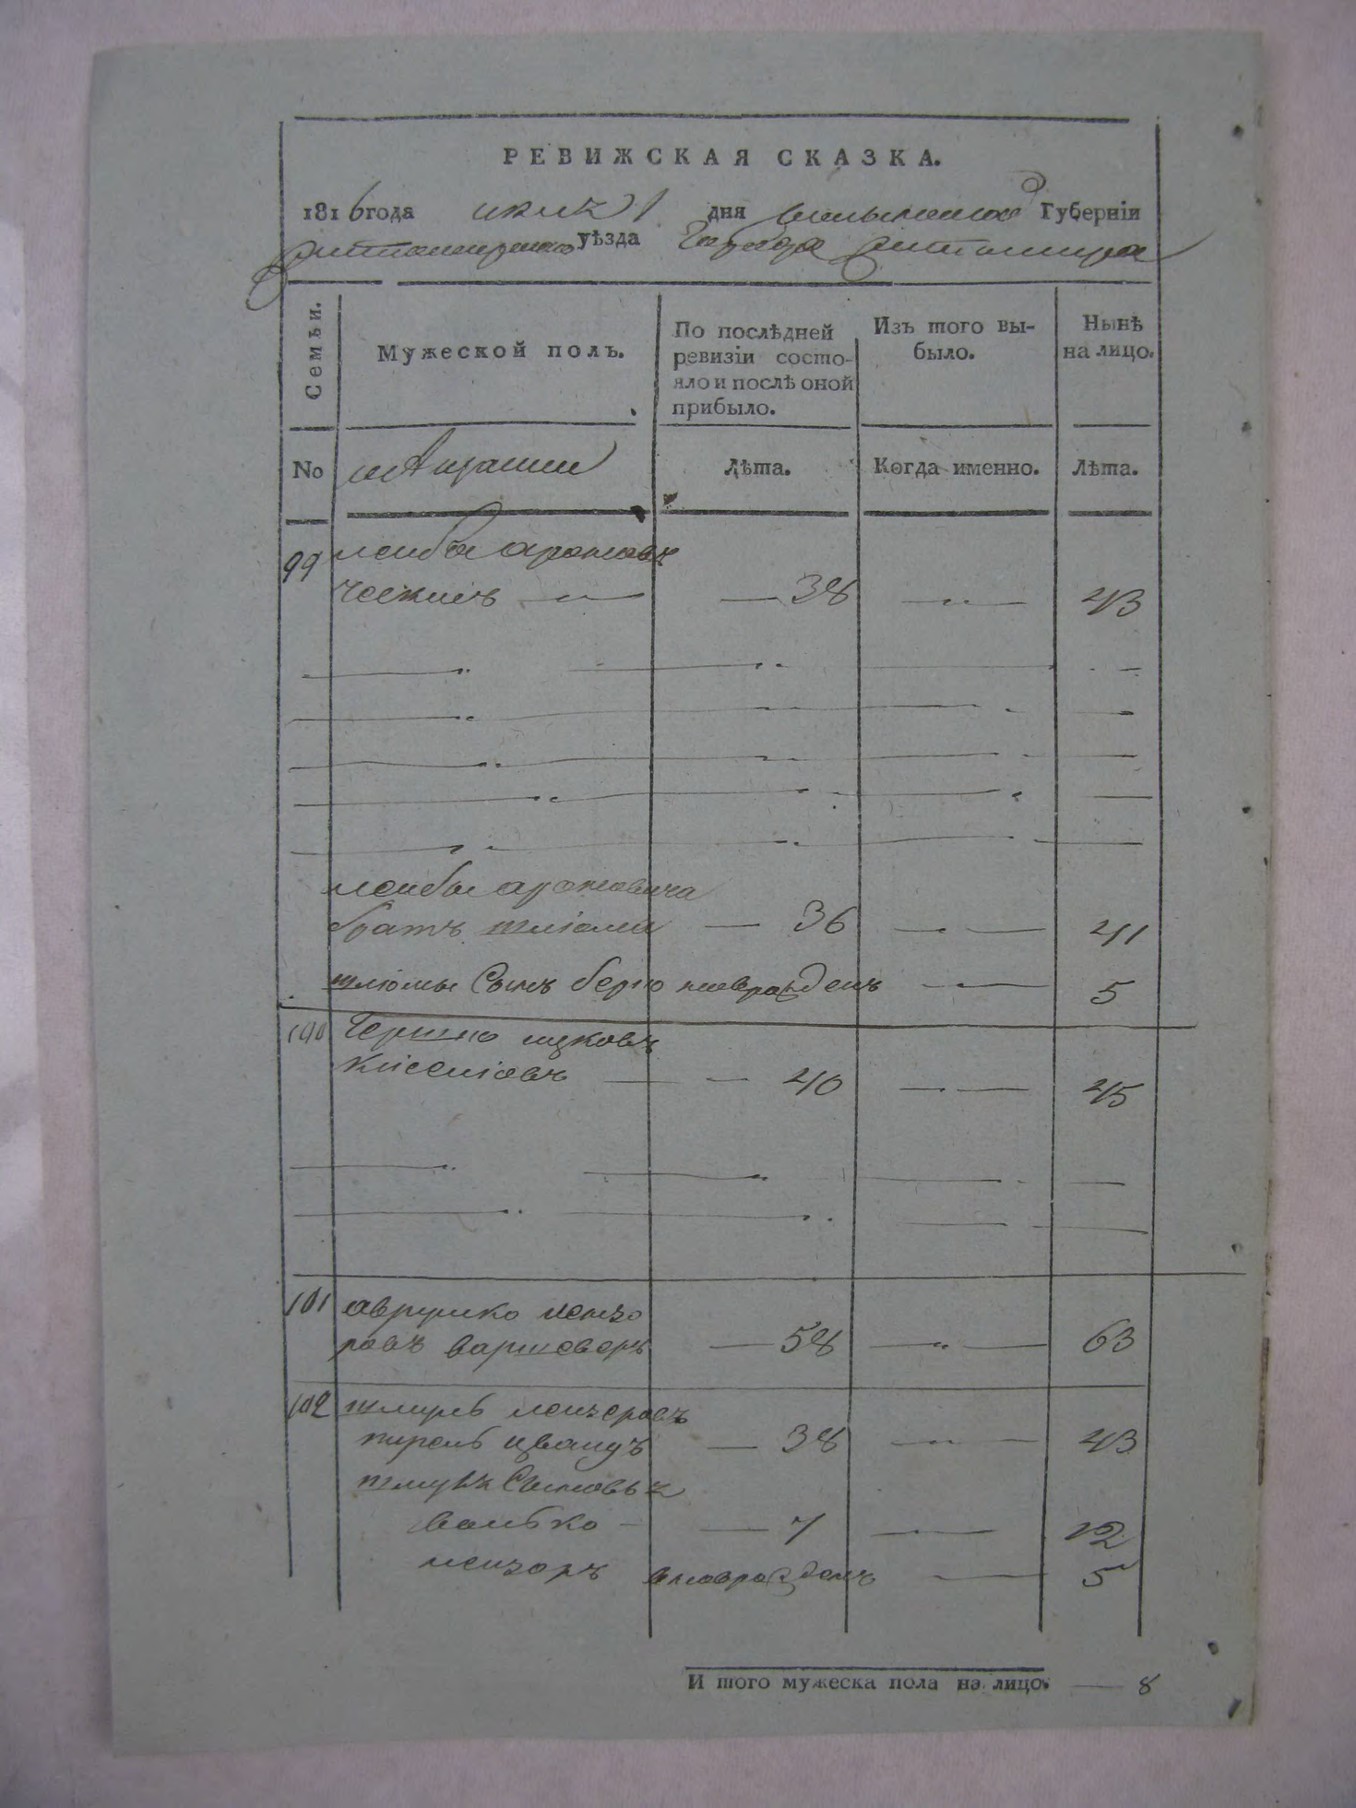 РЕВИЖСКАЯ СКАЗКА.
1816 года июля 1 дня Волынской Губерніи
Житомирскаго уѣзда Города Житомира
Семьи.
Мужеской полъ.
По послѣдней ревизіи состояло и послѣ оной прибыло.
Изъ того выбыло.
Нынѣ на лицо.
No
Лѣта.
Когда именно.
Лѣта.
99 Лейба Ароновъ
— 38 — 43
Лейбы Ароновича
братъ Шліома — 36 — 41
Шліомы Сынъ Берко новорожденъ — 5
100 Гершко Ицковъ
Киселіовъ — 40 — 45
101 Аврумко Лейзо
ровъ Варшаверъ — 58 — 63
102 Шмуль Лейзеровъ
— 38 — 43
Шмуля Сыновья
Волько — 7 — 12
Лейзоръ новорожденъ — 5
И того мужеска пола на лицо. — 8